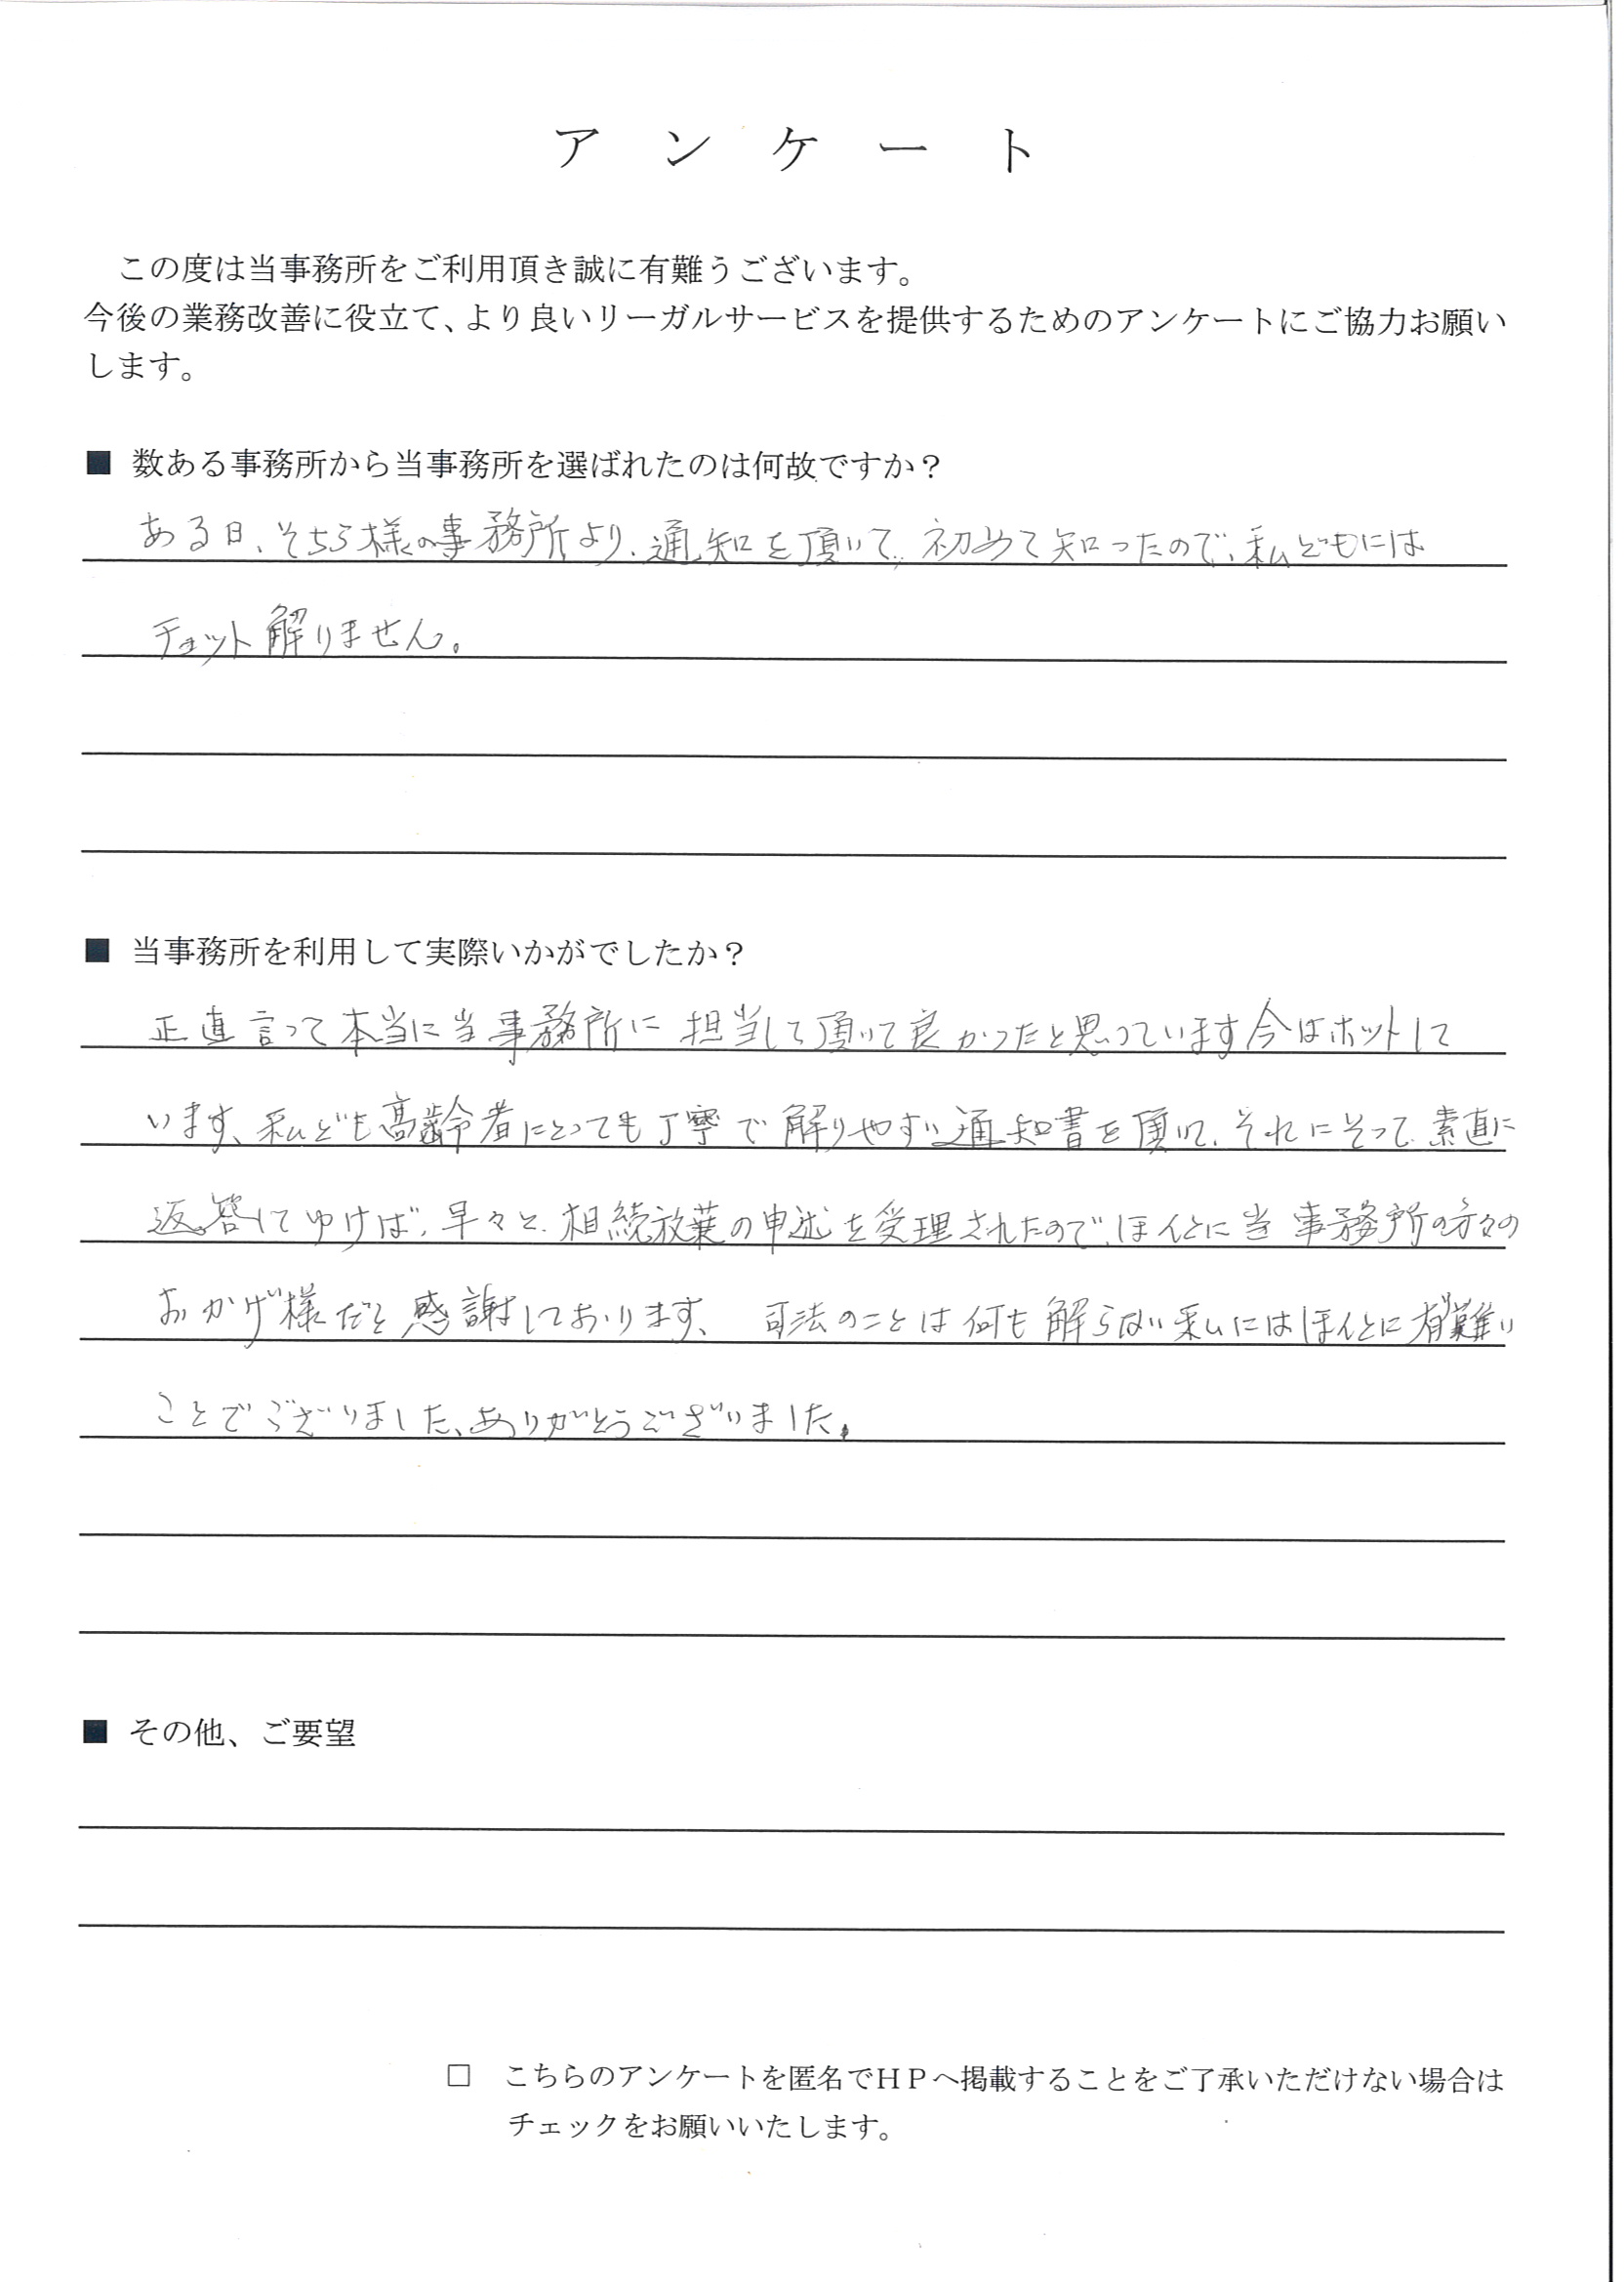 アンケート
この度は当事務所をご利用頂き誠に有難うございます。
今後の業務改善に役立て、より良いリーガルサービスを提供するためのアンケートにご協力お願い
します。
■ 数ある事務所から当事務所を選ばれたのは何故ですか？
ある日、そちら様の事務所より、通知を頂いて、初めて知ったので、私どもには
チョット解りません。
■ 当事務所を利用して実際いかがでしたか？
正直言って本当に当事務所に担当して頂いて良かったと思っています今はホットして
います、私ども高齢者にとっても丁寧で解りやすい通知書を頂いて、それにそって素直に
返答してゆけば、早々と、相続放棄の申述を受理されたので、ほんとに当事務所の方々の
おかげ様だと感謝しております、司法のことは何も解らない私にはほんとに有難い
ことでござりました、ありがとうございました。
■ その他、ご要望
□ こちらのアンケートを匿名でＨＰへ掲載することをご了承いただけない場合は
チェックをお願いいたします。